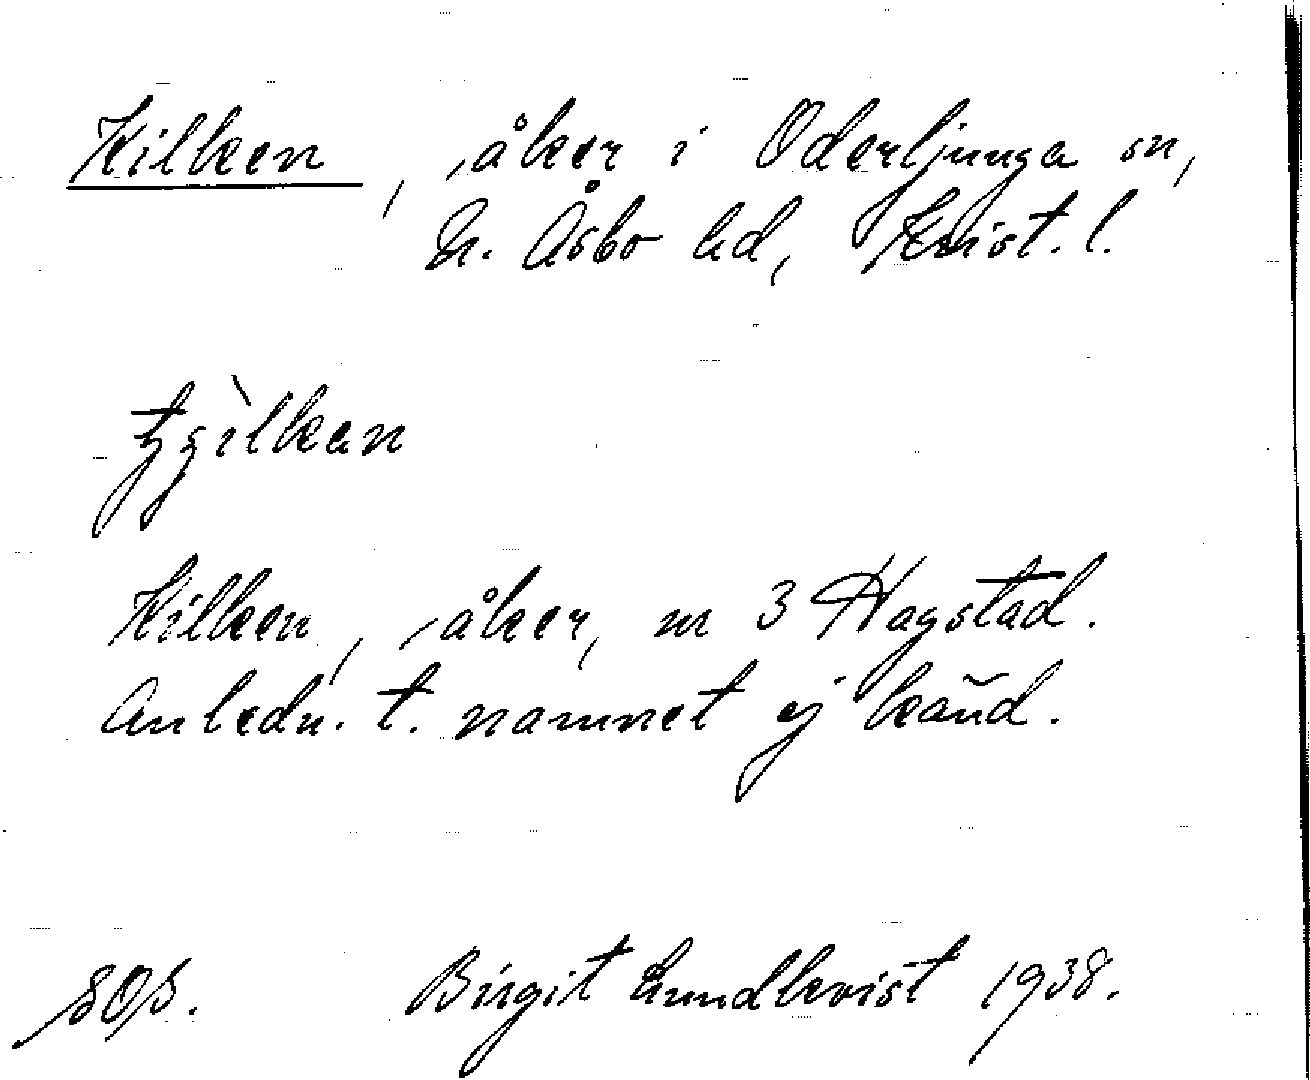 Kilken, åker i Oderljunga sn,
N. Åsbo hd, Krist. l.
Kilken, åker, nr 3 Hagstad.
Anledn. t. namnet ej känd.
Birgit Lundkvist 1938.